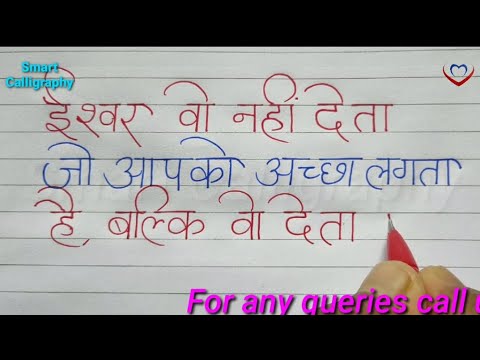 Smart
Calligraphy
ईश्वर वो नहीं देता
जो आपको अच्छा लगता
है, बल्कि वो देता
For any queries call